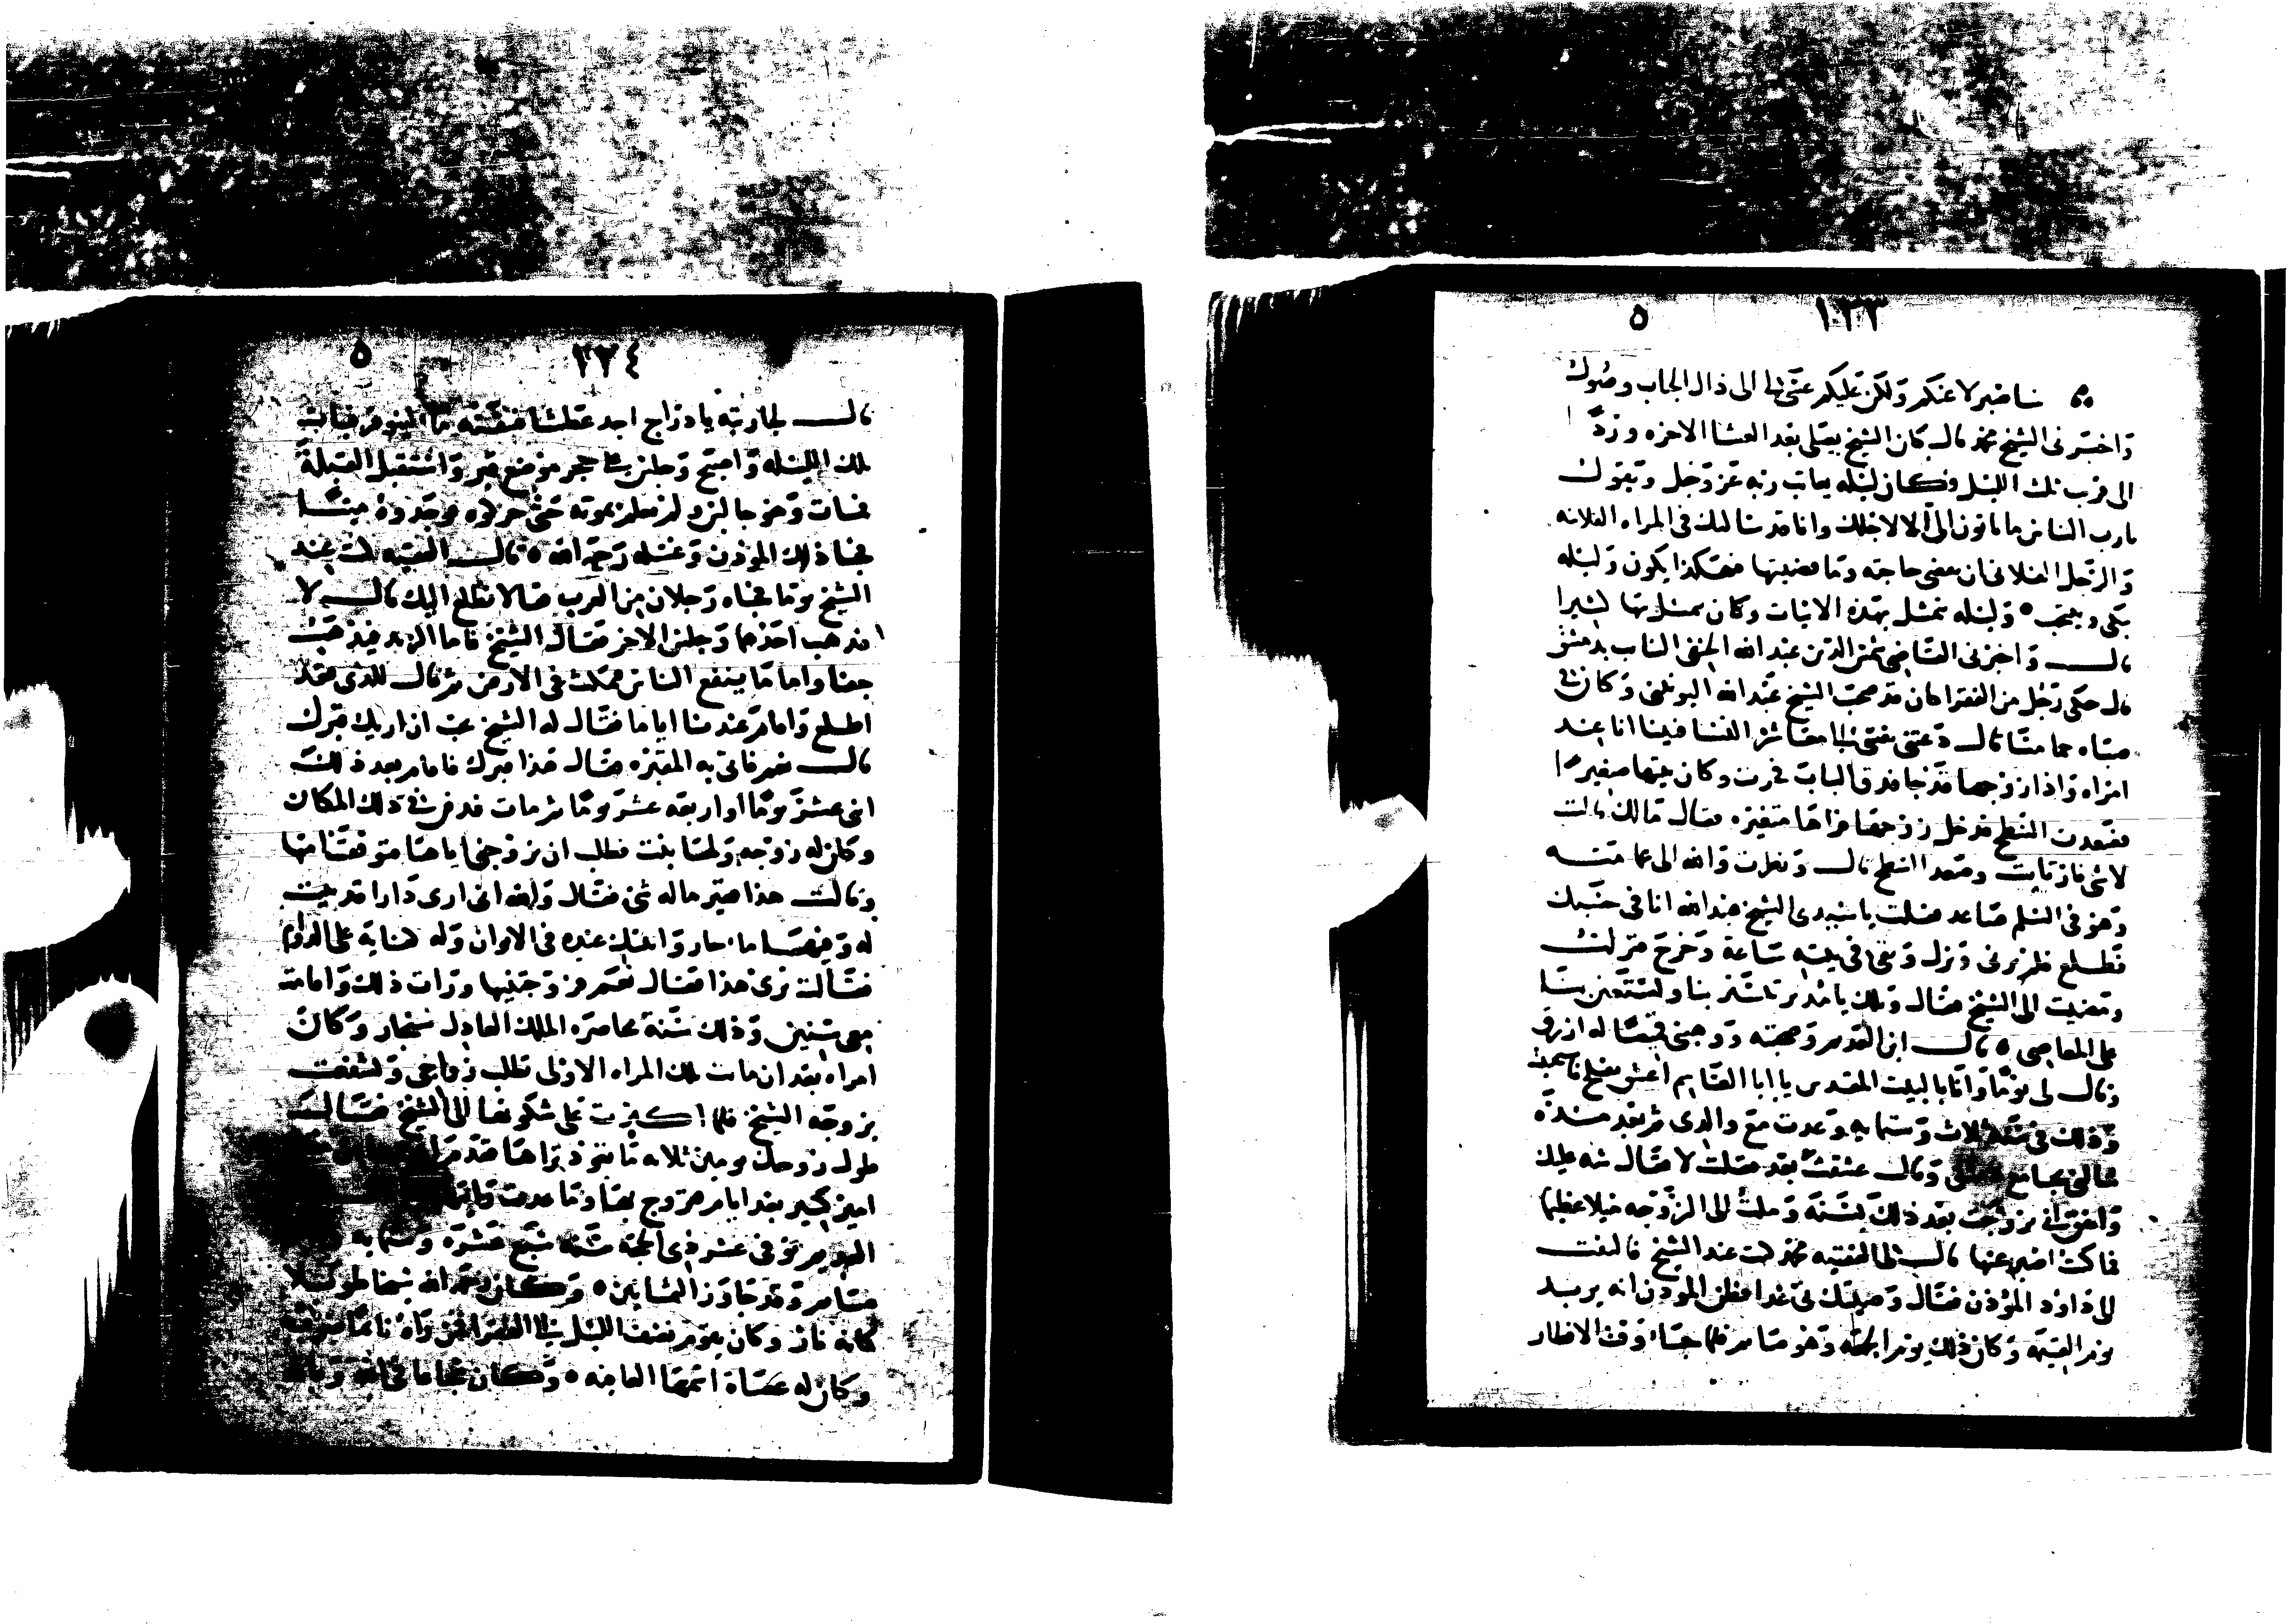 ٥ ١٣٣
ساصبر لا عنكم ولكن عليكم عسى الى ذال الجاب وصول
واخبرنى الشيخ محمد قال كان الشيخ يصلى بعد العشا الاخره ورد
الى قرب ثلث الليل فكان ليله يعاتب ربه عز وجل ويقول
يارب الناس ما ياتون الى الا لاجلك وانا قد سالتك فى المراه الفلانيه
والرجل الفلانى ان تقضى حاجته وما قضيتها فهكذا يكون وليله
يبكى وينتحب ٥ وليله يتمثل بهذه الابيات وكان يتمثل بها كثيرا
قال واخبرنى القاضى شمس الدين عبد الله الحنفى النايب بدمشق
قال حكى رجل من الفقرا كان قد صحب الشيخ عبد الله اليونينى وكان فى
صباه جماشا قال دعتنى نفسى الى معاشره النسا فبينا انا عند
امراه واذا زوجها قد جا فدق الباب فخرت وكان بيتها صغيرا
فصعدت السطح فدخل زوجها فراها متغيره فقال مالك قالت
لا شى فارتابت وصعد السطح قال ونظرت والله الى عمامته
وهو فى السلم صاعد فقلت يا سيدى الشيخ عبد الله انا فى حسبك
فطلع فلم يرنى ونزل وبقى فى بيته ساعة وخرج فنزلت
ومضيت الى الشيخ فقال ويلك يا مدبر تاشتر بنا وتستعين بنا
على المعاصى ٥ قال ابن القدوم وصحبته ووهبنى قميصا له ازرق
وقال لى يوما وانا بالبيت المقدس يا ابا القاسم اعشق تفلح
وذلك فى سنة ثلاث وستمايه وعدت مع والدى ثم بعد مدة
بجامع وقال عشقت بعد فقلت لا فقال شه عليك
واتفق انى تزوجت بعد ذلك بسنة وملت الى الزوجه ميلا عظيما
فما كنت اصبر عنها قال لى الفقيه محمد كنت عند الشيخ فالتفت
الى داود الموذن فقال وصيتك بى غدا فظن الموذن انه يريد
يوم القيمة وكان ذلك يوم الجمعة وهو صايم فلما جاء وقت الافطار
٥ ٢٣٤
قال لجاريته يا دراج اجد عطشا فسقته ما اللينوفر فبات
تلك الليله واصبح وجلس على حجر موضع قبره واستقبل القبلة
فمات وهو جالس ولم يعلم بموته حتى حركوه فوجدوه ميتا
فجا ذلك الموذن وغسله رحمه الله ٥ قال الفقيه كنت عند
الشيخ يوما فجاه رجلان من العرب فقالا نطلع اليك قال لا
فذهب احدهما وجلس الاخر فقال الشيخ فاما الزبد فيذهب
جفا واما ما ينفع الناس فيمكث فى الارض ثم قال للذى قعد
اطلع واقام عندنا اياما فقال له الشيخ تحب ان اريك قبرك
قال نعم فاتى به المقبره فقال هذا قبرك فاقام بعد ذلك
اثنى عشر يوما او اربعه عشر يوما ثم مات فدفن فى ذلك المكان
وكان له زوجه ولها بنت فطلب ان يزوجنى اياها فتوقفت امها
وقالت هذا فقير ماله شى فقال والله انى ارى دارا قد بنيت
له وفيها ما جار وابنتك عنده فى الايوان وله كفاية على الدوام
فقالت ترى هذا فقال نعم فزوجتنيها ورات ذلك واقامت
معى سنين وذلك سنة محاصره الملك العادل سنجار وكانت
امراه بعد ان ماتت تلك المراه الاولى تطلب زواجى وتشفعت
بزوجه الشيخ فلما اكثرت على شكوتها الى الشيخ فقال
طول روحك يومين ثلاثه ما تعود تراها
امير كبير بعد ايام فتزوج بها وما عدت رايتها
اليوم توفى عشر ذى الحجة سنة سبع عشرة وستمايه
صايم وقد جاوز الثمانين ٥ وكان رحمه الله شيخا طويلا
كانه نار وكان يقوم نصف الليل الى الفقرا فمن راه نايما ضربه
وكان له عصاة اسمها العافيه ٥ وكان مجاهدا فى الله